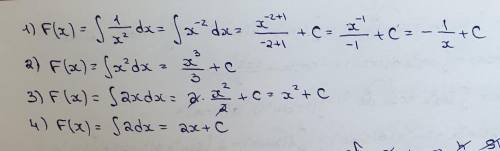 1) F(x) = ∫ 1/x² dx = ∫ x⁻² dx = x⁻²⁺¹/-2+1 + C = x⁻¹/-1 + C = - 1/x + C
2) F(x) = ∫ x² dx = x³/3 + C
3) F(x) = ∫ 2x dx = 2 · x²/2 + C = x² + C
4) F(x) = ∫ 2 dx = 2x + C